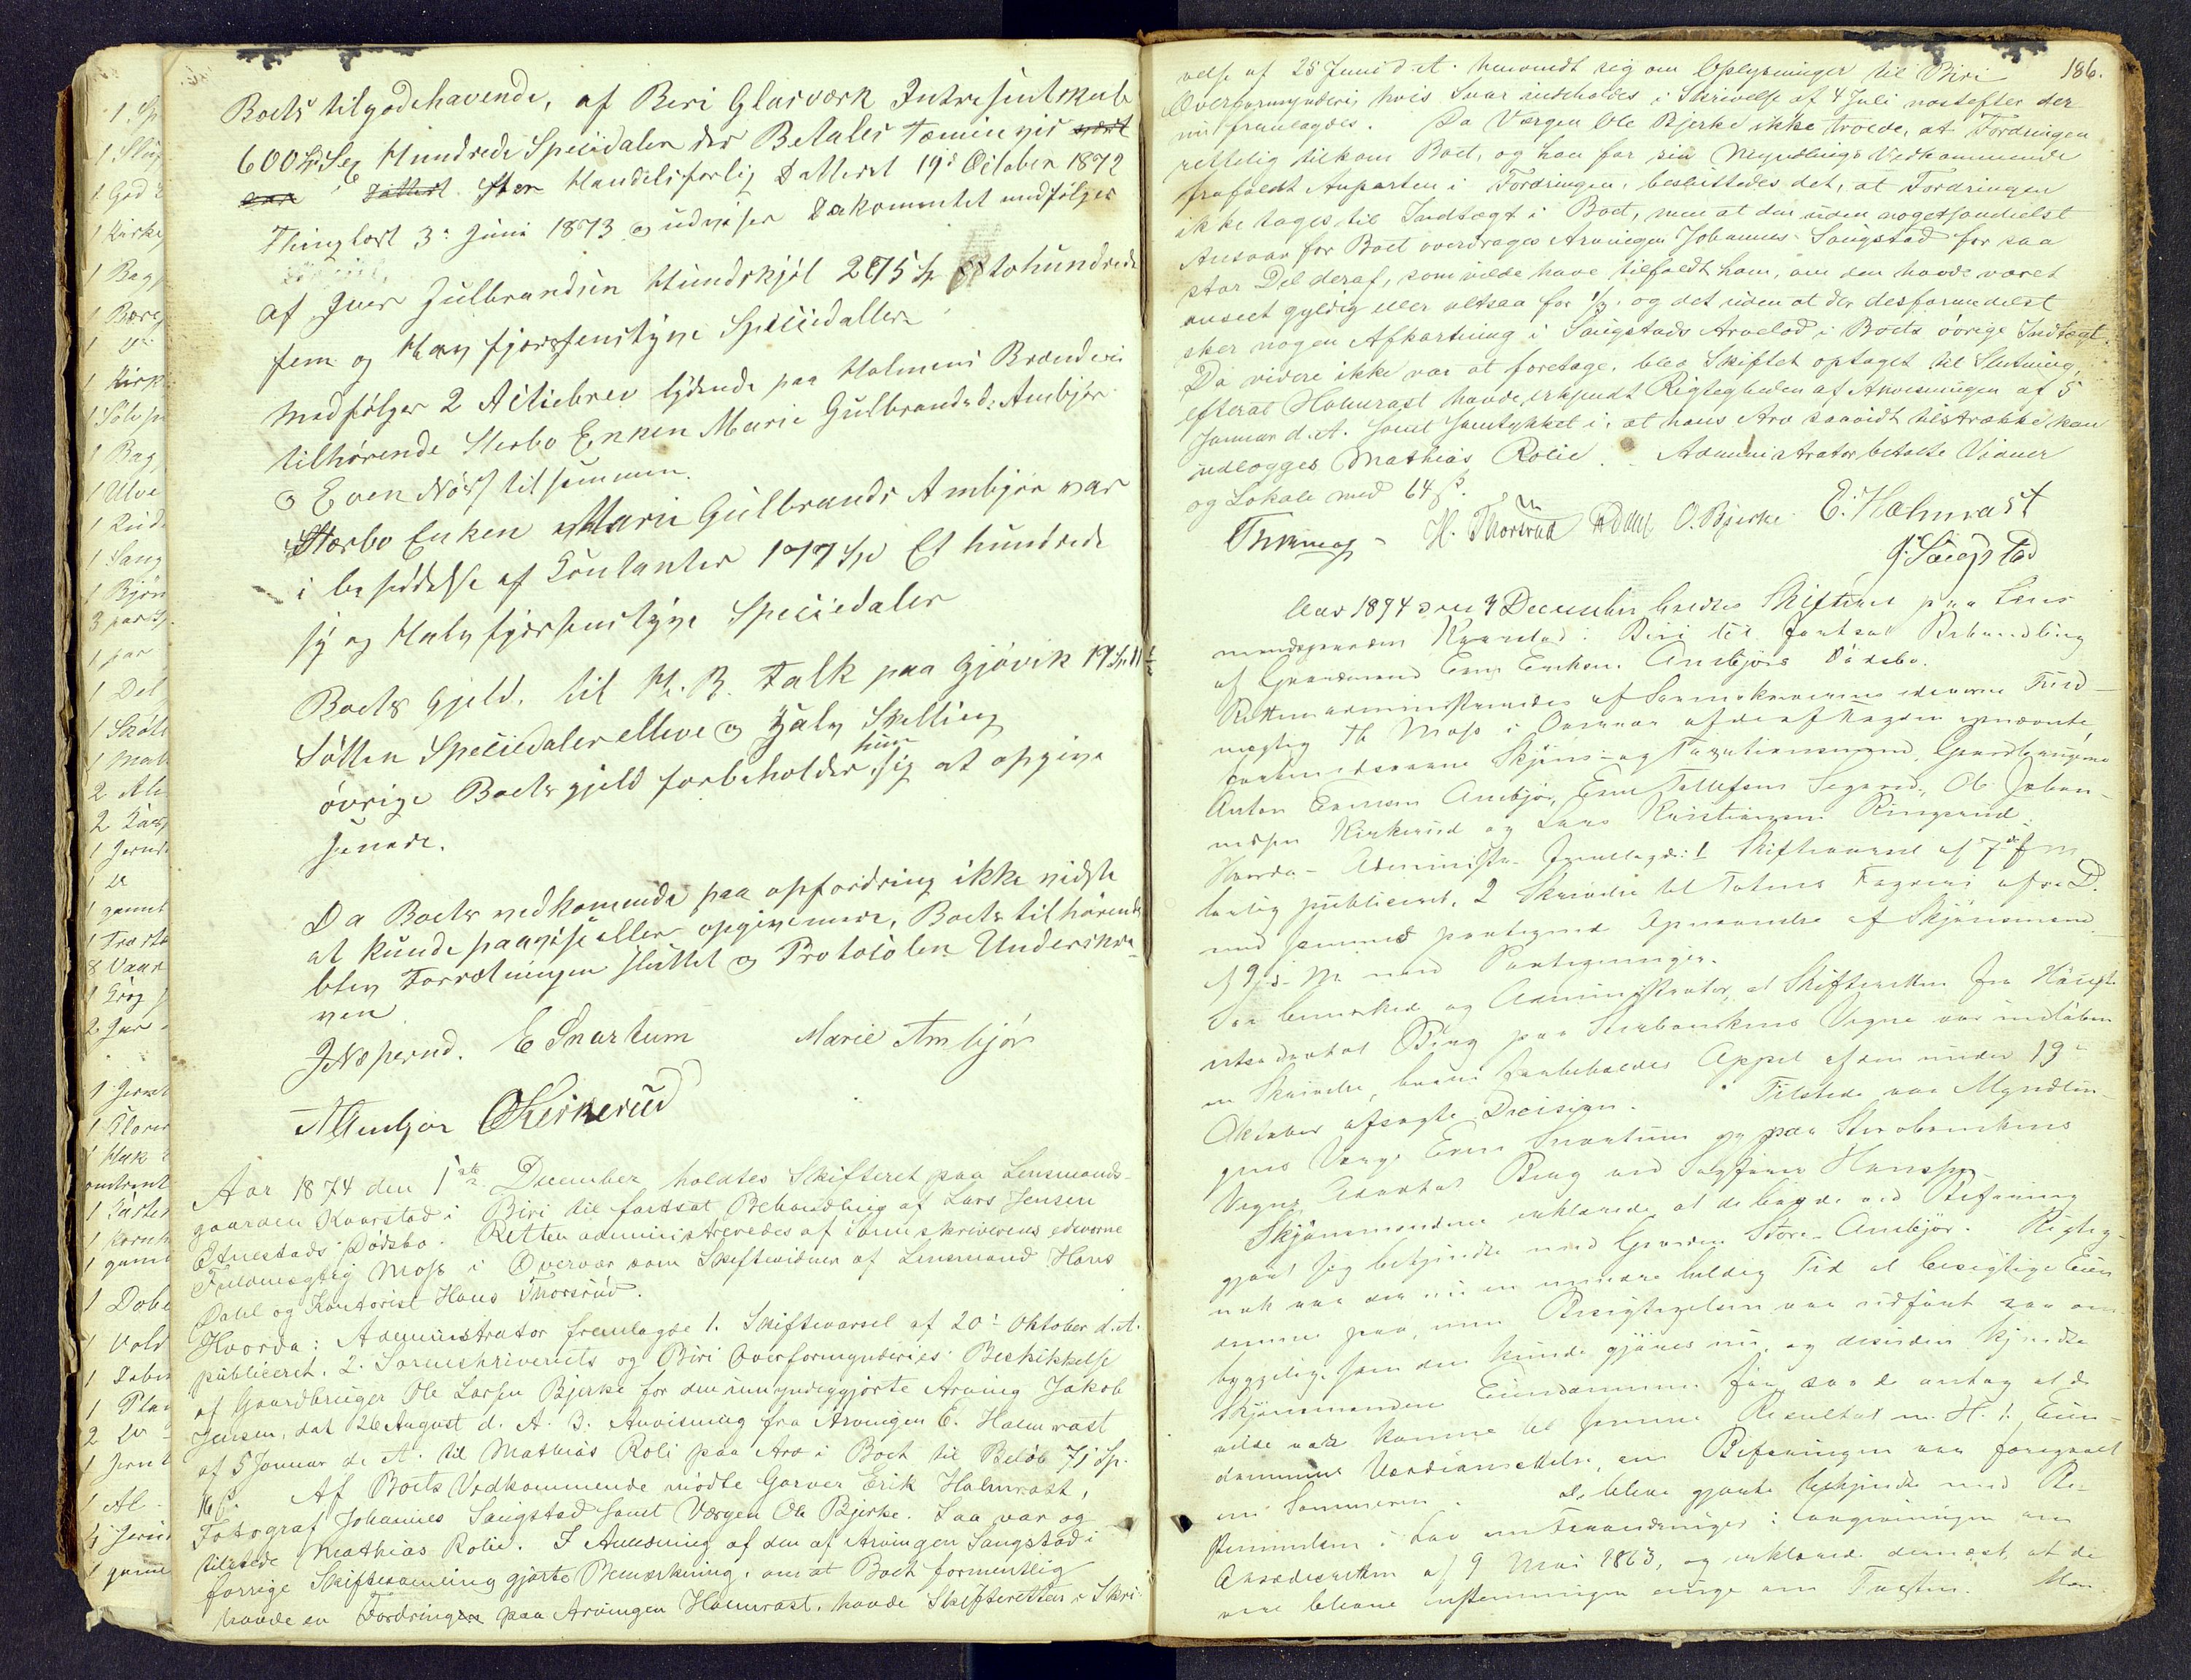 Boets tilgodehavende, af Beri Glasværk Intresentskab
600 Sp Sex Hundrede Speciedaler der Betales Tæmin vis
Handelsforlig Dattert 19de October 1872
Thinglæst 3: Juni 1873 og udviser Dokomentet medfølger
af Iver Julbrandsen Hundskjøl 275 Sp tohundrede
fem og Halv fjersenstyve Speciedaller
Medfølger 2 Actiebrev lydende paa Holmens Brænderi
tilhørende Sterbo Enken Marie Gulbrandsd: Ambjør
og Even til sammen.
Stærbo Enken Marie Gulbrands Ambjør var
i besiddelse af Contanter 177 Sp Et hundrede
syv og Halv fjersenstyve Speciedaler
Boets Gjeld. til H. B. Falk paa Gjøvik 17 Sp 11 ½
Søtten Speciedaler elleve og Halv Skelling
øvrige Boets gjeld forbeholder hun sig at opgive
senere.
Da Boets vedkomende paa opfordring ikke vidste
at kunde paavise eller opgive mere, Boets tilhørende
blev Forretningen sluttet og Protocolen Underskre-
ven
E Snartum Marie Ambjør
AAmbjør OKirkerud
Aar 1874 den 1ste December holdtes Skifteret paa Lensmands-
gaarden Kvarstad i Biri til fortsat Behandling af Lars Jensen
Etnestads Dødsbo. Retten administreredes af Sorenskriverens edsvorne
Fuldmægtig Moss i Overvær som Skiftevidner af Lensmand Hans
Dahl og Kontorist Hans Thorsrud.
Hvorda: Administrator fremlagde 1. Skiftevarsel af 20de Oktober d. A.
publiceret. 2. Sorenskriveriets og Biri Overformynderies Beskikkelse
af Gaardbruger Ole Larsen Bjerke for den umyndiggjorte Arving Jakob
Jensen, dat 26 August d. A. 3. Anvisning fra Arvingen E. Halmrast
af 5 Januar d. A. til Mathias Roli paa Arv i Boet til Beløb 71 Sp.
16 ß. Af Boets Vedkommende mødte Garver Erik Halmrast,
Fotograf Johannes Saugstad samt Værgen Ole Bjerke. Saa var og
tilstede Mathias Rolie. I Anledning af den af Arvingen Saugstad i
forrige Skiftesamling gjorte Bemærkning, om at Boet formentlig
havde en Fordring paa Arvingen Halmrast, havde Skifteretten i Skri-
186.
velse af 25 Juni d. A. henvendt sig om Oplysninger til Biri
Overformynderi, hvis Svar indeholdes i Skrivelse af 4 Juli næstefter der
nu fremlagdes. Da Værgen Ole Bjerke ikke troede, at Fordringen
rettelig tilkom Boet, og han for sin Myndlings Vedkommende
frafaldt Anparten i Fordringen, besluttedes det, at Fordringen
ikke tages til Indtægt i Boet, men at den uden nogetsomhelst
Ansvar for Boet overdrages Arvingen Johannes Saugstad for saa
stor Del deraf, som vilde have tilfaldt ham, om den havde været
anseet gyldig eller altsaa for 1/3. og det uden at der desformedelst
sker nogen Afkortning i Saugstads Arvelod i Boets øvrige Indtægt.
Da videre ikke var at foretage, blev Skiftet optaget til Slutning,
efterat Halmrast havde erkjendt Rigtigheden af Anvisningen af 5
Januar d. A. samt samtykket i, at hans Arv saavidt tilstrække kan
udlægges Mathias Rolie. Administrator betalte Vidner
og Lokale med 64 ß.
H. Thorsrud HDahl O. Bjerke E: Halmrast
J. Saugstad
Aar 1874 den 4 December holdtes Skifteret paa Lens
mandsgaarden Kvarstad i Biri til fortsat Behandling
af Gaardmand Even Eriksen Ambjørs Dødsbo.
Retten administreredes af Sorenskriverens edsvorne Fuld-
mægtig Th Moss i Overvær af de af Fogden opnævnte
edsvorne Skjøns- og Taxationsmænd, Gaardbrugerne
Anton Evensen Ambjør, Even Tollefsen Segaard, Ole Johan-
nessen Kirkerud og Lars Kristiansen Ringerud.
Hvorda- Administr. fremlagde: 1 Skiftevarsel af 7de f. M
lovlig publiceret, 2 Skrivelse til Totens Fogderi af s. D.
med sammes paategnede Opnævnelse af Skjønsmænd
af 9 s. M. med Paategninger.
Saa bemærked og Administrator, at Skifteretten fra Høieste-
retsadvokat Bing paa Sterboenkens Vegne var indløben
en Skrivelse, hvori forbeholdes Appel af den under 19de
Oktober afsagte Decision. Tilstede var Myndlin-
gens Værge Even Snartum og paa Sterboenkens
Vegne Advokat Bing ved Sagfører Hansson
Skjønsmændene erklærede at de havde ved Befaring
gjort sig bekjendte med Gaarden Store-Ambjør. Rigtig-
nok var der nu en mindre heldig Tid at besigtige Eien
domme paa, men Besigtigelsen var udført saa om
hyggelig som den kunde gjøres nu, og desuden kjendte
Skjønsmændene Eiendommen før, saa de antog at de
vilde nok komme til samme Resultat m. H. t. Eien-
dommens Værdiansættelse, om Befaringen var foregaaet
om Sommeren. De bleve gjorte bekjendte med Be-
stemmelsen i Lov om Forandringer i Lovgivningen om
Aasædesretten af 9 Mai 1863, og erklærede dernæst, at de
vare blevne enige om Taxten. Man